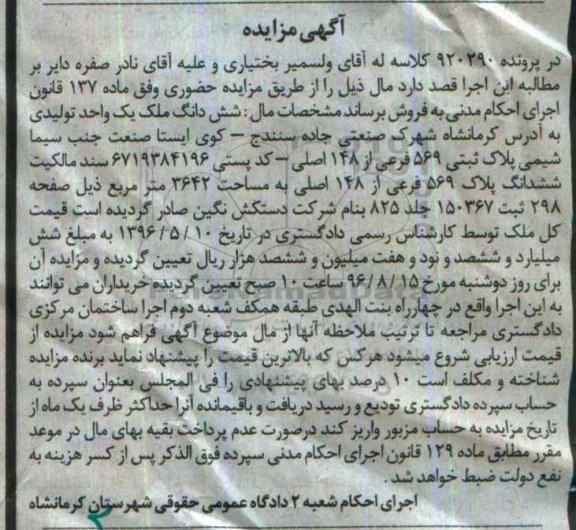 آگهی مزایده
در پرونده ۹۲۰۲۹۰ کلاسه له آقای ولسمیر بختیاری و علیه آقای نادر صفره دایر بر
مطالبه این اجرا قصد دارد مال ذیل را از طریق مزایده حضوری وفق ماده ۱۳۷ قانون
اجرای احکام مدنی به فروش برساند مشخصات مال : شش دانگ ملک یک واحد تولیدی
به آدرس کرمانشاه شهرک صنعتی جاده سنندج – کوی ایستا صنعت جنب سیما
شیمی پلاک ثبتی ۵۶۹ فرعی از ۱۴۸ اصلی – کد پستی ۶۷۱۹۳۸۴۱۹۶ سند مالکیت
ششدانگ پلاک ۵۶۹ فرعی از ۱۴۸ اصلی به مساحت ۳۶۴۲ متر مربع ذیل صفحه
۲۹۸ ثبت ۱۵۰۳۶۷ جلد ۸۲۵ بنام شرکت دستکش نگین صادر گردیده است قیمت
کل ملک توسط کارشناس رسمی دادگستری در تاریخ ۱۰ / ۵ / ۱۳۹۶ به مبلغ شش
میلیارد و ششصد و نود و هفت میلیون و ششصد هزار ریال تعیین گردیده و مزایده آن
برای روز دوشنبه مورخ ۱۵ / ۸ / ۹۶ ساعت ۱۰ صبح تعیین گردیده خریداران می توانند
به این اجرا واقع در چهارراه بنت الهدی طبقه همکف شعبه دوم اجرا ساختمان مرکزی
دادگستری مراجعه تا ترتیب ملاحظه آنها از مال موضوع آگهی فراهم شود مزایده از
قیمت ارزیابی شروع میشود هرکس که بالاترین قیمت را پیشنهاد نماید برنده مزایده
شناخته و مکلف است ۱۰ درصد بهای پیشنهادی را فی المجلس بعنوان سپرده به
حساب سپرده دادگستری تودیع و رسید دریافت و باقیمانده آنرا حداکثر ظرف یک ماه از
تاریخ مزایده به حساب مزبور واریز کند درصورت عدم پرداخت بقیه بهای مال در موعد
مقرر مطابق ماده ۱۲۹ قانون اجرای احکام مدنی سپرده فوق الذکر پس از کسر هزینه به
نفع دولت ضبط خواهد شد .
اجرای احکام شعبه ۲ دادگاه عمومی حقوقی شهرستان کرمانشاه